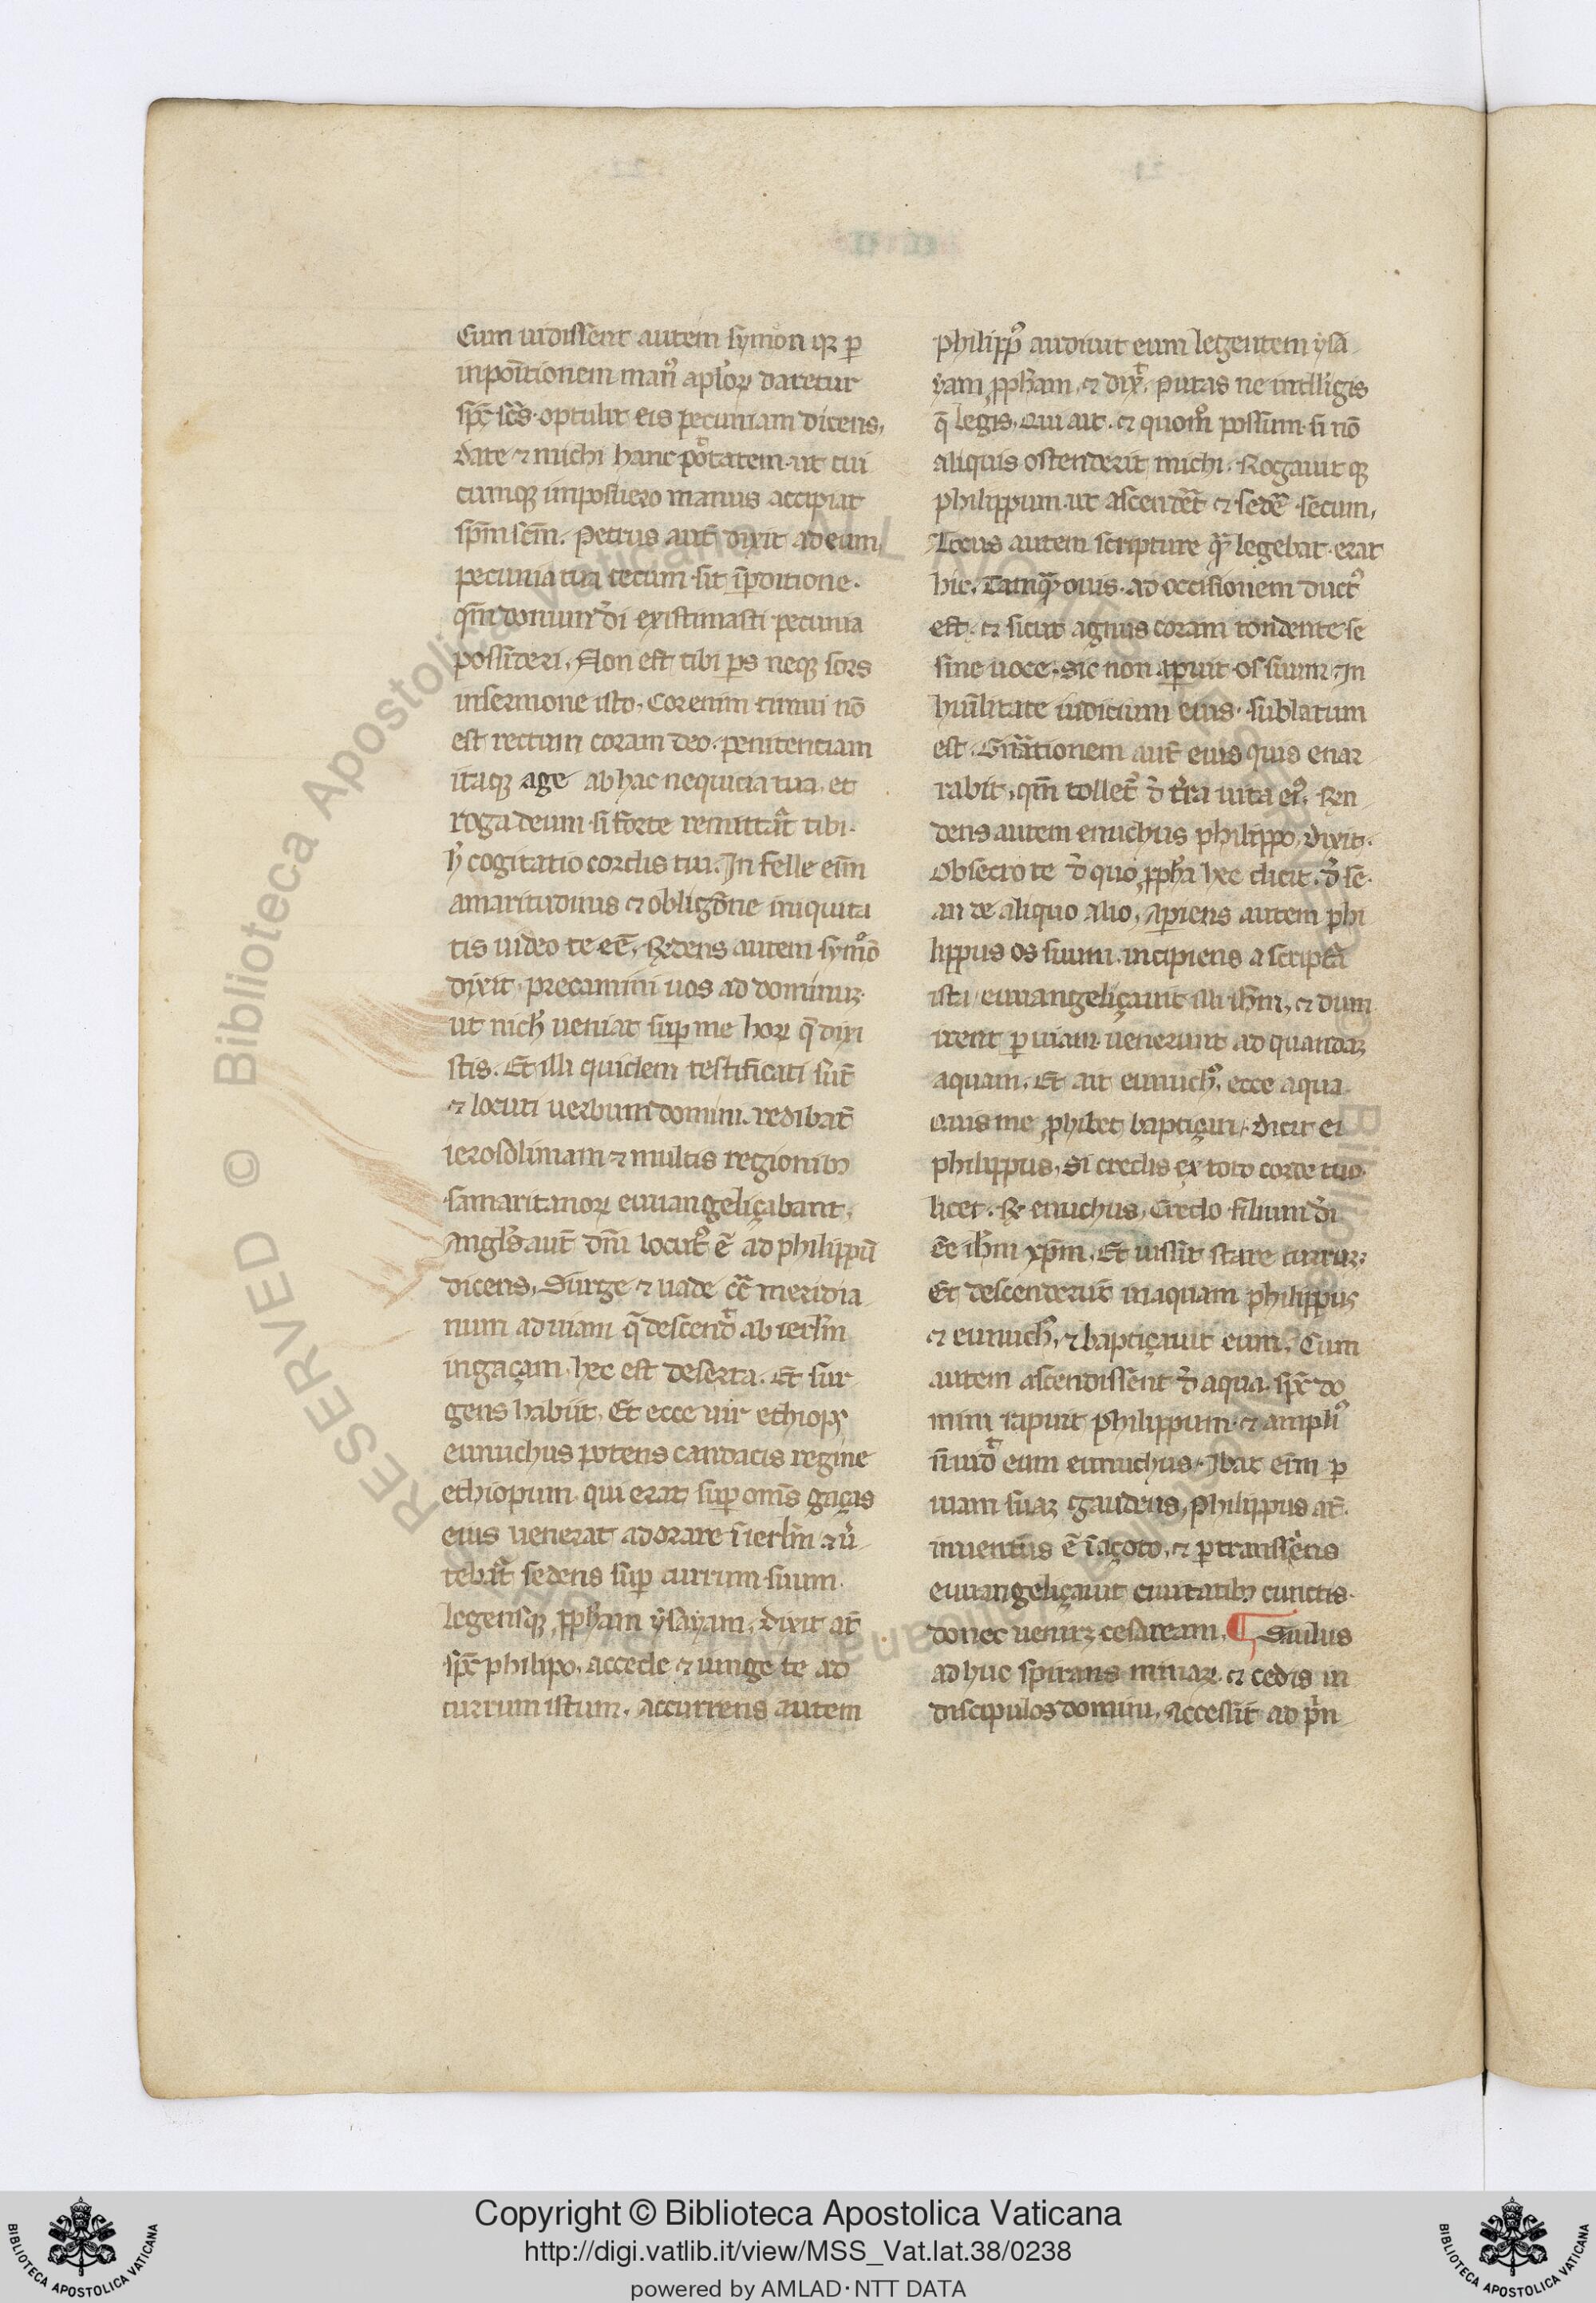 Cum uidissent autem symon qꝫ ꝑ
inpoĩtionem manꝰ apl'oꝝ daretur
sp̃c sc̃s· optulit eis pecuniam dicens,
date ⁊ michi hanc põtatem· ut cui
cumqꝫ imposuero manus accipiat
sp̃m sc̃m. Petrus aut̃ dixit ad eum,
pecunia tua tecum· sit ĩꝑditione·
qm̃ donum d̃i existimasti pecunia
possideri, Non est tibi ꝑs neqꝫ sors
in sermone isto, Cor enim tuum nõ
est rectum coram deo· penitentiam
itaqꝫ age ab hac nequicia tua, et
roga deum· si forte remittat̃ tibi·
h̃ cogitatio cordis tui. In felle eĩm
amaritudinis ⁊ obligõne iniquita
tis uideo te eẽ, R̃dens autem symõ
dixit· precamini uos ad dominuꝫ
ut nich' ueniat suꝑ me hoꝝ q̃ dixi
stis. Et illi quidem testificati sũt
⁊ locuti uerbum domini. redibãt
ierosolimam ⁊ multis regionibꝫ
samaritanoꝝ euuangeliçabant,
Angl's aut̃ dñi locutꝰ ẽ ad philippũ
dicens, Surge ⁊ uade cc̃ meridia
num ad uiam q̃ descend̃ ab ierl'm
in gaçam· hec est deserta. Et sur
gens habiit, Et ecce uir ethiops
eunuchus potens candacis regine
ethiopum· qui erat suꝑ om̃s gaças
eius uenerat adorare ĩ ierl'm ⁊ ũ
tebat̃ sedens suꝑ currum suum·
legensqꝫ ꝓph̃am ysayam, Dixit at̃
sp̃c philipo, accede ⁊ iunge te ad
currum istum, Accurrens autem
philippꝰ audiuit eum legentem ysa
yam ꝓph̃am, ⁊ dix̃, Putas ne intelligis
q̃ legis, Qui ait· ⁊ quom̃ possum· si nõ
aliquis ostenderit michi, Rogauit qꝫ
philippum· ut ascendẽt ⁊ sedẽ secum,
Locus autem scripture q̃ legebat· erat
hic, Tamq̃ ouis· ad occisionem ductꝰ
est· ⁊ sicut agnus coram tondente se
sine uoce, sic non aꝑuit os suum, In
hũilitate iudicium eius· sublatum
est. Gñationem aut̃ eius quis enar
rabit, qm̃ tollet̃ d̃ t̃ra uita eiꝰ, R̃n
dens autem enuchus philippo, dixit·
Obsecro te d̃ quo ꝓph̃a hec dicit, d̃ se·
an de aliquo alio, Aꝑiens autem phi
lippus os suum· incipiens a scriptã
ista euuangeliçauit illi ih̃m, ⁊ dum
irent ꝑ uiam uenerunt ad quandaꝫ
aquam, Et ait eunuchꝰ, ecce aqua
quis me ꝓhibet baptiçari, dicit ei
philippus, Si credis ex toto corde tuo
licet. R̃ enuchus, Credo filium d̃i
ẽe ih̃m xp̃m, Et iussit stare curruꝫ·
Et descenderũt in aquam philippus
⁊ eunuchꝰ, ⁊ baptiçauit eum, Cum
autem ascendissent d̃ aqua· sp̃c do
mini rapuit philippum· ⁊ ampliꝰ
ñ uid̃ eum eunuchus· Ibat eĩm ꝑ
uiam suaꝫ gaudens, Philippus at̃
inuentus ẽ ĩ açoto, ⁊ ꝑtransiens
euuangeliçauit ciuitatibꝫ cunctis·
donec ueniꝫ cesaream. ¶ Saulus
adhuc spirans minaꝝ ⁊ cedis in
discipulos domini, accessit ad p̃n
Copyright © Biblioteca Apostolica Vaticana
http://digi.vatlib.it/view/MSS_Vat.lat.38/0238
powered by AMLAD·NTT DATA